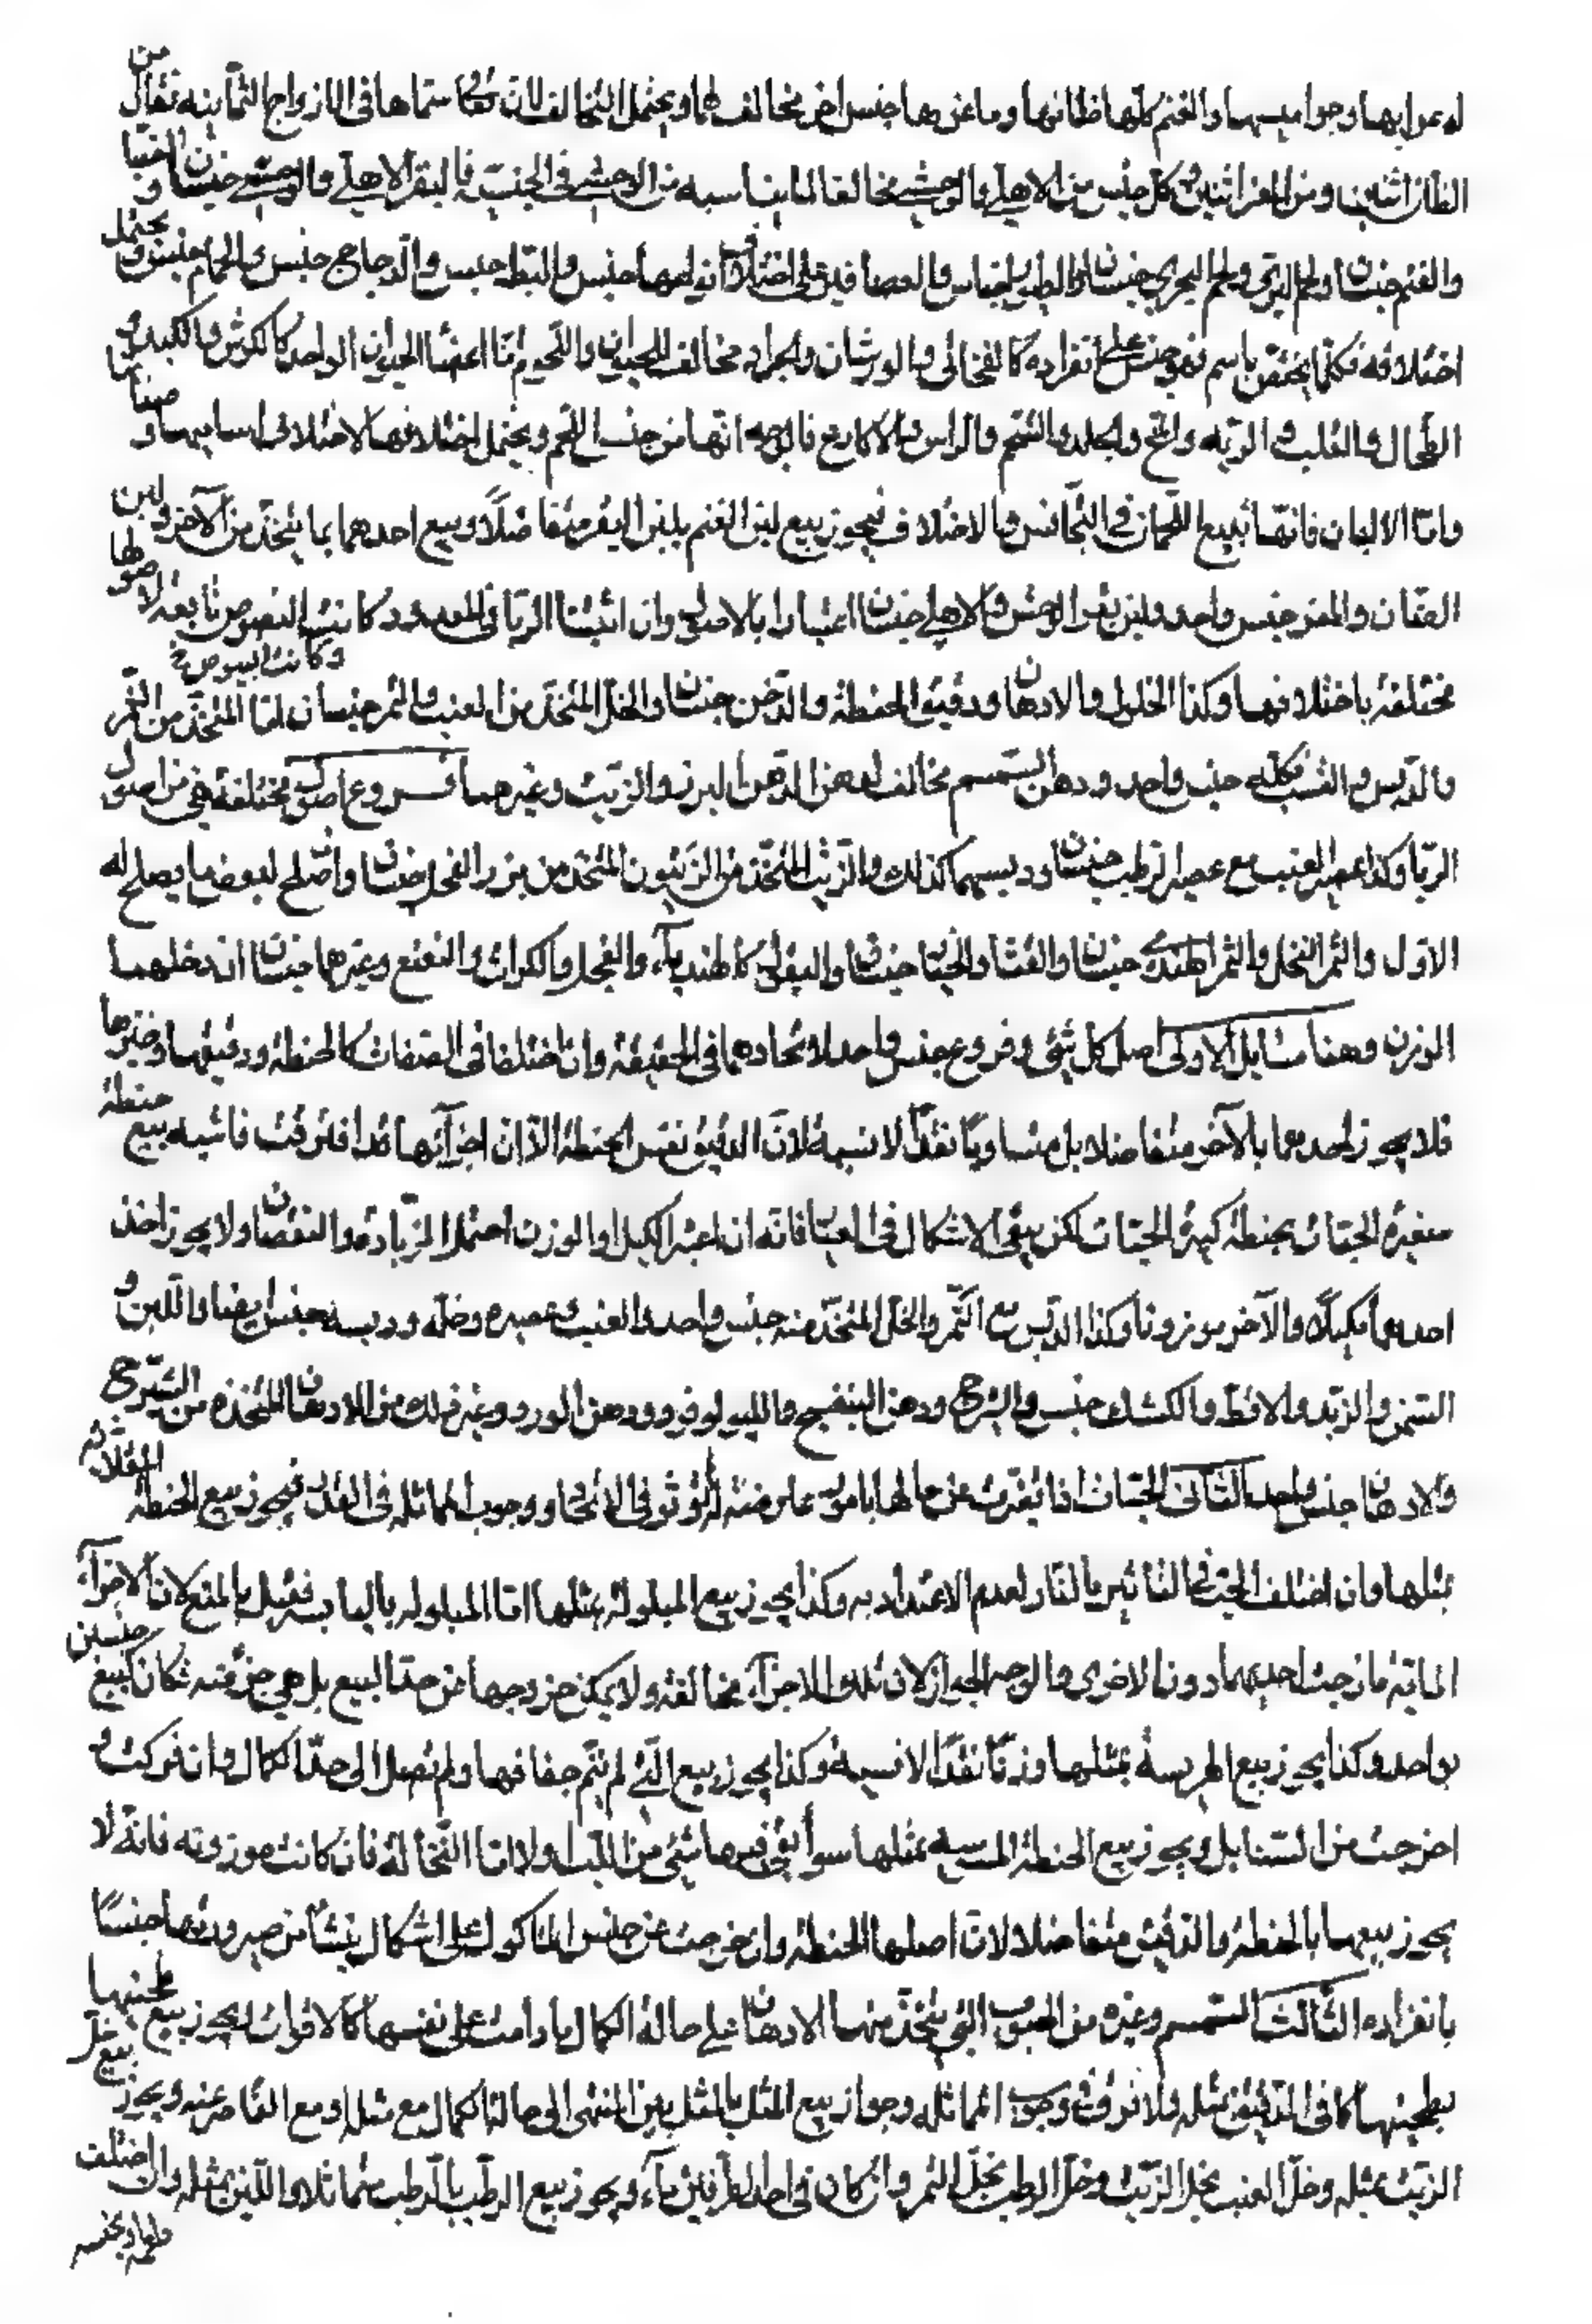 له عرابها وجواميسها والغنم كلها ضانها وماعزها جنس اخر مخالف لها ويحتمل التخالف لان سماها في الازواج الثمانية فقال من
الضأن اثنين ومن المعز اثنين كل جنس من الاهلي والوحشي مخالف لما يناسبه من الوحشي في الجنسية فالبقر الاهلي والوحشي جنسان
والغنم جنسان ولحم البري ولحم البحري جنسان والعصافير على اختلاف انواعها جنس والبط جنس والدجاج جنس والحمام جنس ويحتمل
اختلافه فكلما يختص باسم فهو جنس على انفراده كالفخاتي والورشان والجراد مخالف للحيوان واللحوم اما اعضا الحيوان الواحد كالكرش والكبد و
الطحال والقلب والرية والمخ والجلد والشحم والراس والاكارع فالوجه انها من جنس اللحم ويحتمل اختلافها لاختلاف اساميها و
واما الالبان فانها تتبع اللحمان في التجانس والاختلاف فيجوز بيع لبن الغنم بلبن البقر متفاضلًا وبيع احدهما بما يتخذ من الآخر ولبن
الضان والمعز جنس واحد ولبن بقر الوحش والاهلي جنسان اعتبارا بالاصل وان اثبتنا الربا في المعدود كانت البيوض تابعة لاصولها
وكانت البيوض خ
مختلفة باختلافها وكذا الخلول والادهان ودقيق الحنطة والدخن جنسان والخل المتخذ من العنب والتمر جنسان اما المتخذ من التمر
والدبس والقسب فكله جنس واحد ودهن السمسم مخالف لدهن البزر والزيت وغيرهما فروع اصول مختلفة هي من اصول
الربا وكذا عصير العنب مع عصير الرطب جنسان ودبسهما كذلك والزيت المتخذ من الزيتون المتخذ من بزر الفجل جنسان وان صلح لبعض ما يصلح له
الاول والتمر النخل والتمر الهندي جنسان والقثاء والخيار جنسان والبقول كالهندباء والفجل والكراث والنعنع وغيرهما جنسان ان دخلهما
الوزن وهنا مسايل الاولى اصل كل شئ وفروعه جنس واحد لاتحادهما في الحقيقة وان اختلفا في الصفات كالحنطة ودقيقها وخبزها
فلا يجوز احدهما بالآخر متفاضلا بل متساويًا نقدًا لا نسية لان الدقيق نفس الحنطة الا ان اجزآئها قد افترقت فاشبه بيع حنطة
صغيرة الحبات بحنطة كبيرة الحبات لكن يبقى الاشكال في فانه ان اعتبر الكيل او الوزن احتمل الزيادة والنقصان ولا يجوز اخذ
احدهما مكيلًا والآخر موزونا وكذا الدبس مع التمر والخل المتخذ منه جنس واحد والعنب وعصيره وخله ودبسه جنس ايضا واللبن و
السمن والزبد والاقط والكشك جنس والشيرج ودهن البنفسج والنيلوفر ودهن الورد وغير ذلك من الادهان المتخذة من الشيرج
والادهان جنس واحد الثاني الحبات اذا تغيرت عن حالها بامور عارضة لم تؤثر في الاتحاد ووجوب المماثلة في القدر فيجوز بيع الحنطة المقلاة
بمثلها وان اختلف الحبات في التاثير بالنار لعدم الاعتداد به وكذا يجوز بيع المبلولة بمثلها اما المبلولة باليابسة فقيل بالمنع لان الاجزآء
المائية مازجت احديهما دون الاخرى والوجه الجواز لان تلك الاجزآء مخالفة ولا يمكن خروجها من حد البيع بل هي جزء منه فكان كبيع جنسين
بواحد وكذا يجوز بيع الهريسة بمثلها وزنًا نقدًا لا نسية وكذا يجوز بيع التي لم يتم جفافها ولم تصل الى حد الكمال وان فركت و
اخرجت من السنابل ويجوز بيع الحنطة بمثلها سوآ بقي فيها شئ من ولا اما النخالة فان كانت موزونة فانه لا
يجوز بيعها بالحنطة والدقيق متفاضلا لان اصلها الحنطة وان خرجت عن جنس الماكول على اشكال ينشأ من صيرورتها جنسًا
بانفراده الثالث السمسم وغيره من الحبوب التي يتخذ منها الادهان على حالة الكمال ما دامت على نفسها كالاقوات فيجوز بيع طحينها
بطحينها كما في الدقيق بمثله ولا فرق في وجوب المماثلة وجواز بيع المثل بالمثل بين المنتهى الى حالة الكمال مع مثله او مع القاصر عنه ويجوز بيع خل
الزيت بمثله وخل العنب بخل الزبيب وخل الرطب بخل التمر وان كان في احد الطرفين مآء ويجوز بيع الرطب بالرطب متماثلا واللبن بمثله وان اختلف